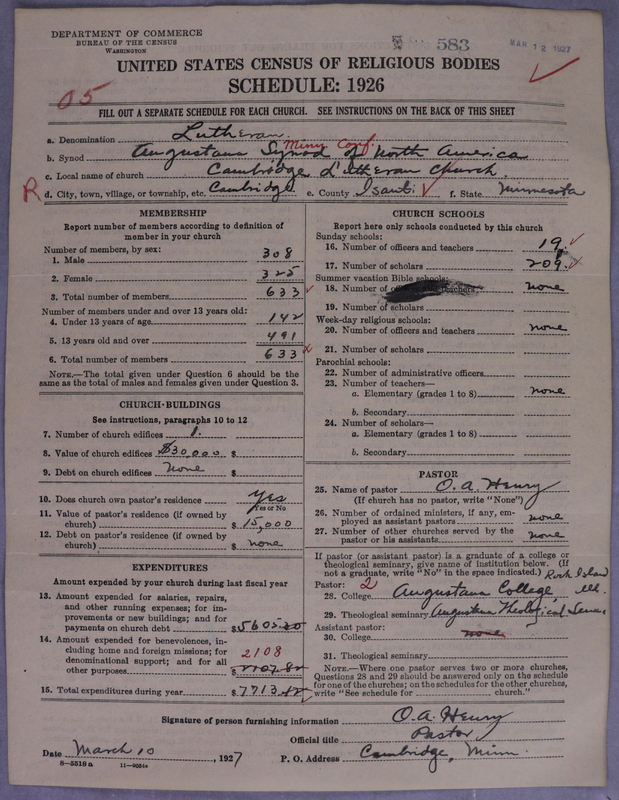 DEPARTMENT OF COMMERCE
BUREAU OF THE CENSUS
WASHINGTON
583
MAR 12 1927
UNITED STATES CENSUS OF RELIGIOUS BODIES
SCHEDULE: 1926
05
FILL OUT A SEPARATE SCHEDULE FOR EACH CHURCH. SEE INSTRUCTIONS ON THE BACK OF THIS SHEET
a. Denomination Lutheran
Minn Conf.
b. Synod Augustana Synod of North America
c. Local name of church Cambridge Lutheran Church.
R d. City, town, village, or township, etc. Cambridge e. County Isanti f. State Minnesota
MEMBERSHIP
Report number of members according to definition of
member in your church
Number of members, by sex:
1. Male 308
2. Female 325
3. Total number of members 633
Number of members under and over 13 years old:
4. Under 13 years of age 142
5. 13 years old and over 491
6. Total number of members 633
NOTE.—The total given under Question 6 should be the
same as the total of males and females given under Question 3.
CHURCH-BUILDINGS
See instructions, paragraphs 10 to 12
7. Number of church edifices 1.
8. Value of church edifices $30,000. $
9. Debt on church edifices none $
10. Does church own pastor's residence Yes
Yes or No
11. Value of pastor's residence (if owned by
church) $15,000
12. Debt on pastor's residence (if owned by
church) $ none
EXPENDITURES
Amount expended by your church during last fiscal year
13. Amount expended for salaries, repairs,
and other running expenses; for im-
provements or new buildings; and for
payments on church debt $5605.20
14. Amount expended for benevolences, in-
cluding home and foreign missions; for
denominational support; and for all
2108
other purposes $
15. Total expenditures during year $7713
CHURCH SCHOOLS
Report here only schools conducted by this church
Sunday schools:
16. Number of officers and teachers 19.
17. Number of scholars 209.
Summer vacation Bible schools:
18. Number of officers and teachers none
19. Number of scholars
Week-day religious schools:
20. Number of officers and teachers none
21. Number of scholars
Parochial schools:
22. Number of administrative officers
23. Number of teachers—
a. Elementary (grades 1 to 8) none
b. Secondary
24. Number of scholars—
a. Elementary (grades 1 to 8)
b. Secondary
PASTOR
25. Name of pastor O. A. Henry
(If church has no pastor, write "None")
26. Number of ordained ministers, if any, em-
ployed as assistant pastors none
27. Number of other churches served by the
pastor or his assistants none
If pastor (or assistant pastor) is a graduate of a college or
theological seminary, give name of institution below. (If
not a graduate, write "No" in the space indicated.) Rock Island
Pastor: 2
28. College Augustana College, Ill.
29. Theological seminary Augustana Theological Semi
Assistant pastor:
30. College none
31. Theological seminary
NOTE.—Where one pastor serves two or more churches,
Questions 28 and 29 should be answered only on the schedule
for one of the churches; on the schedules for the other churches,
write "See schedule for church."
Signature of person furnishing information O. A. Henry
Official title Pastor
Date March 10, 1927 P. O. Address Cambridge, Minn.
8—5518 a